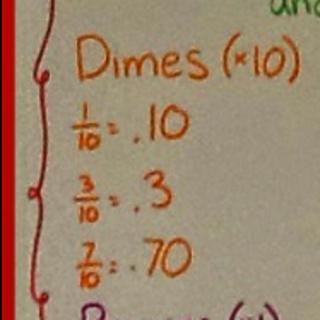 and
Dimes (×10)
1/10 = .10
3/10 = .3
7/10 = .70